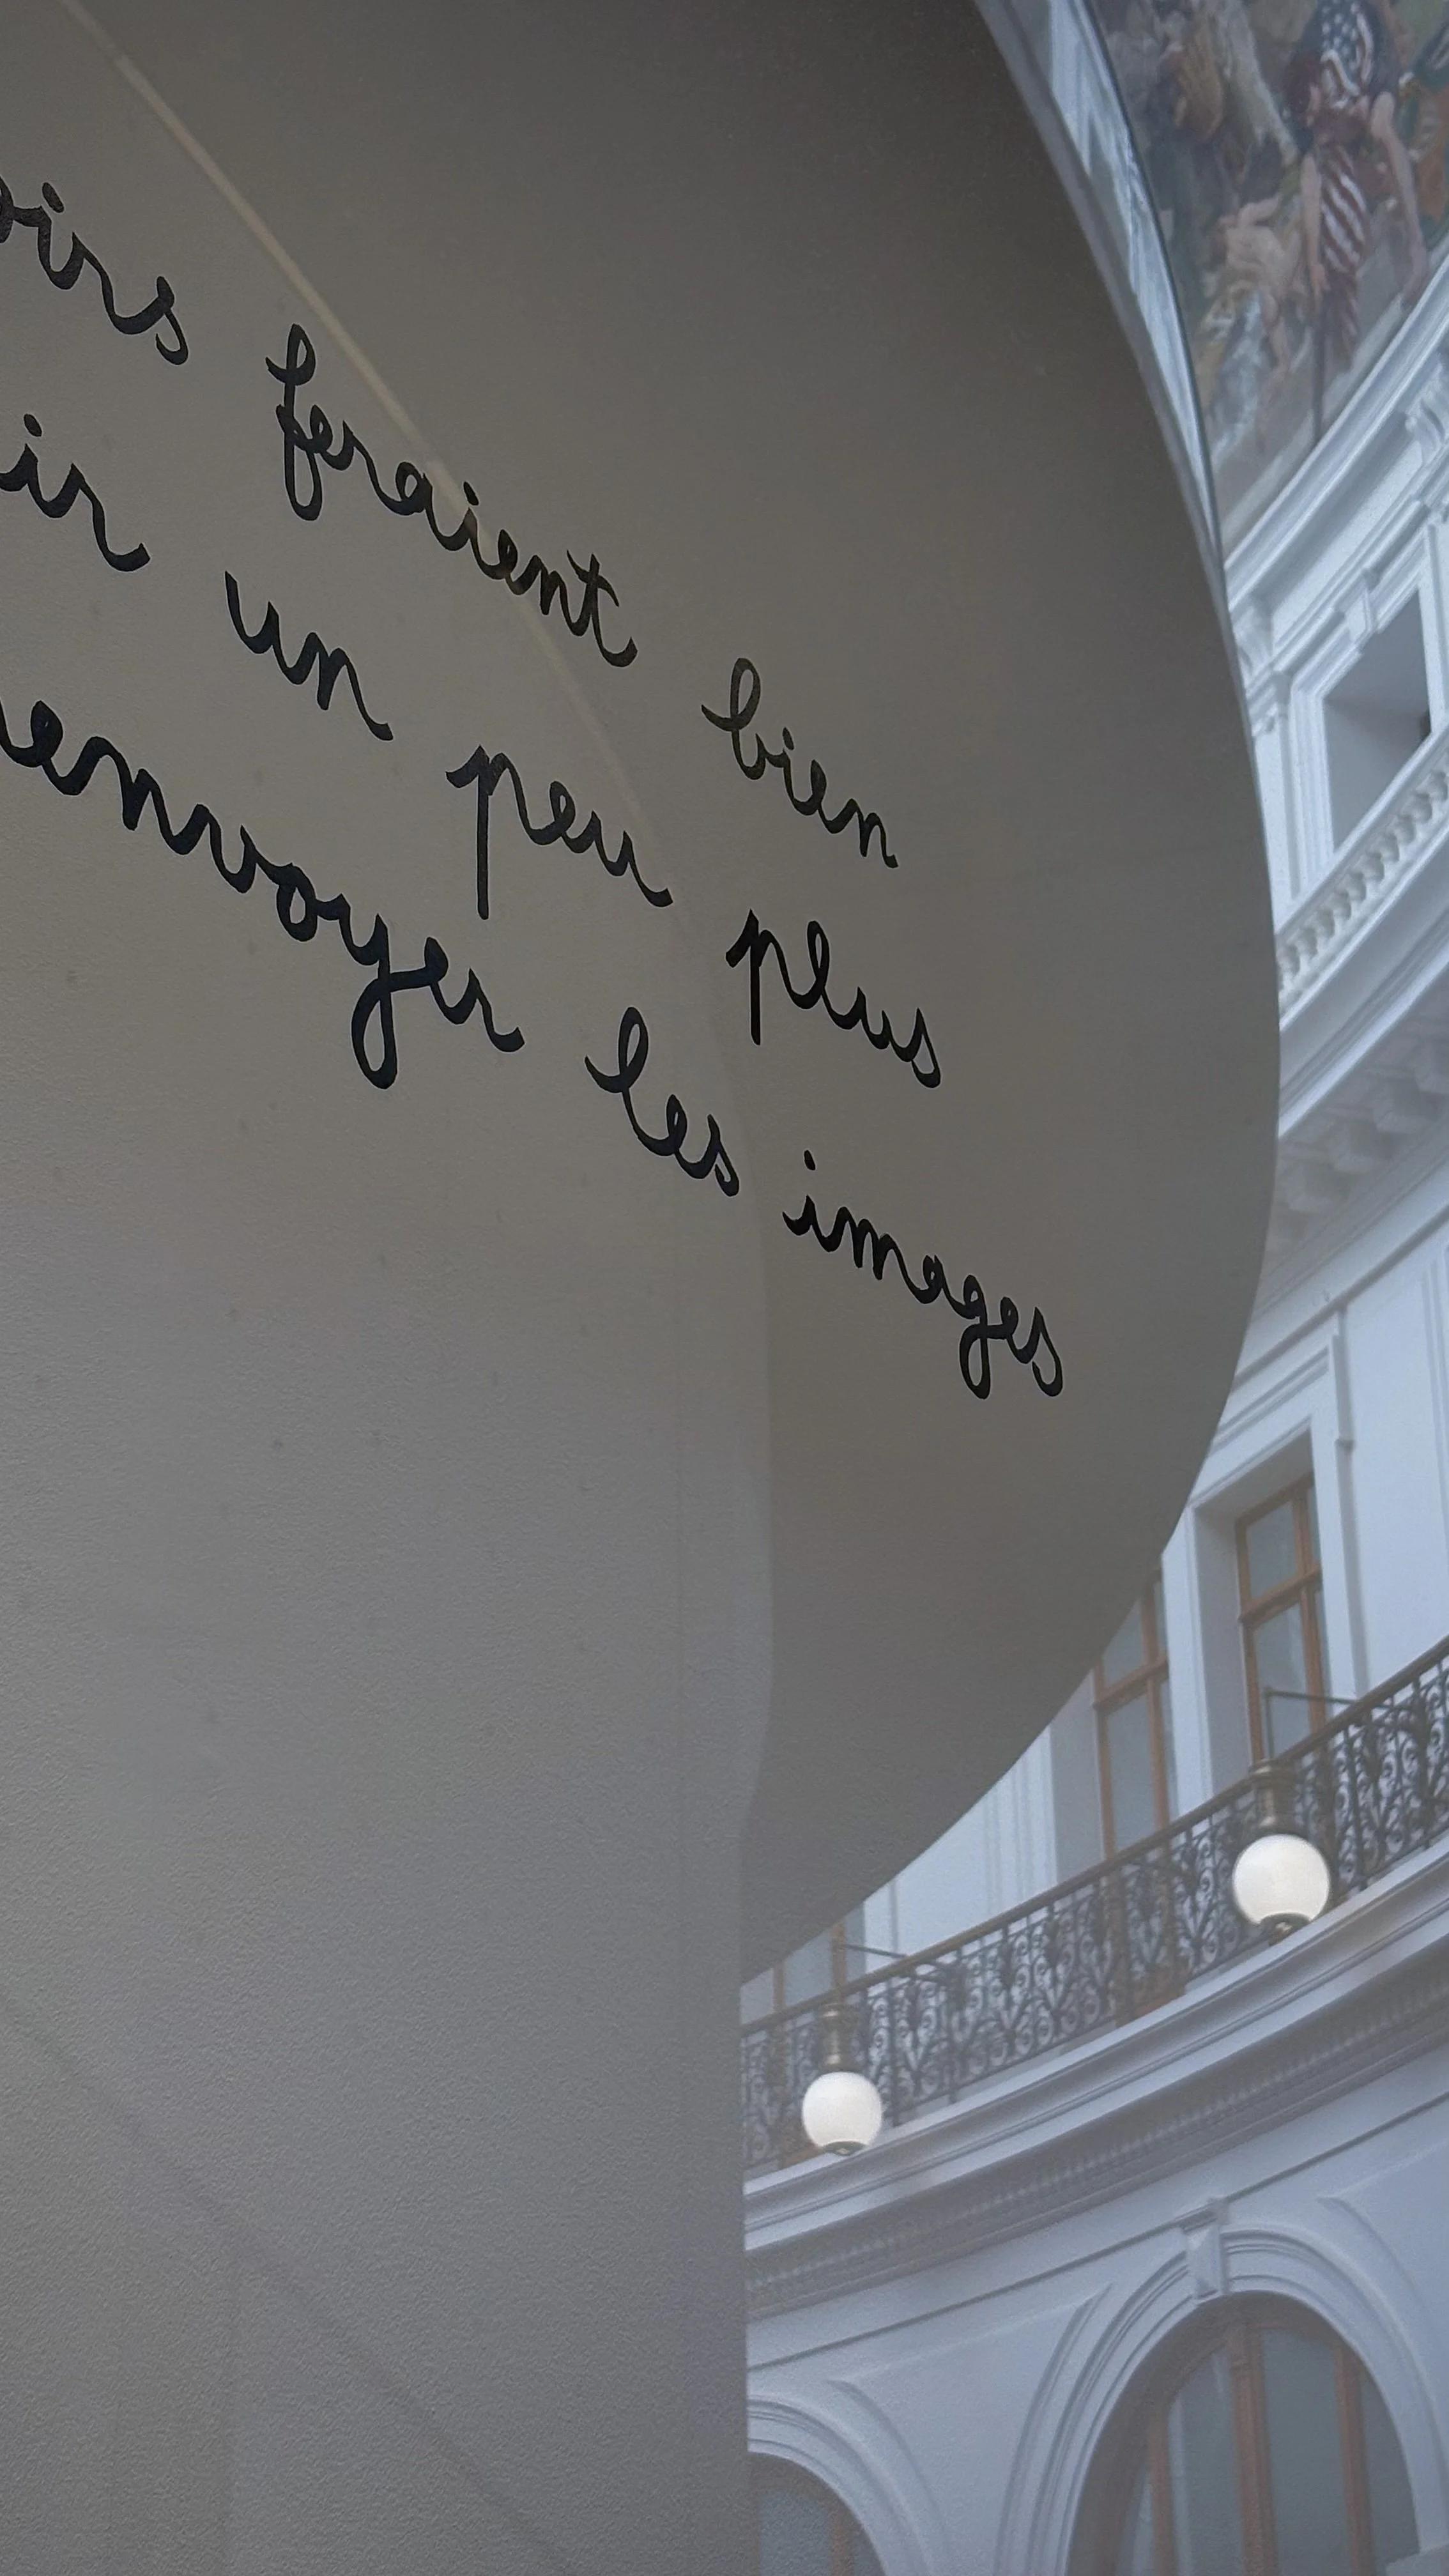 oirs feraient bien
ir un peu plus
envoyer les images